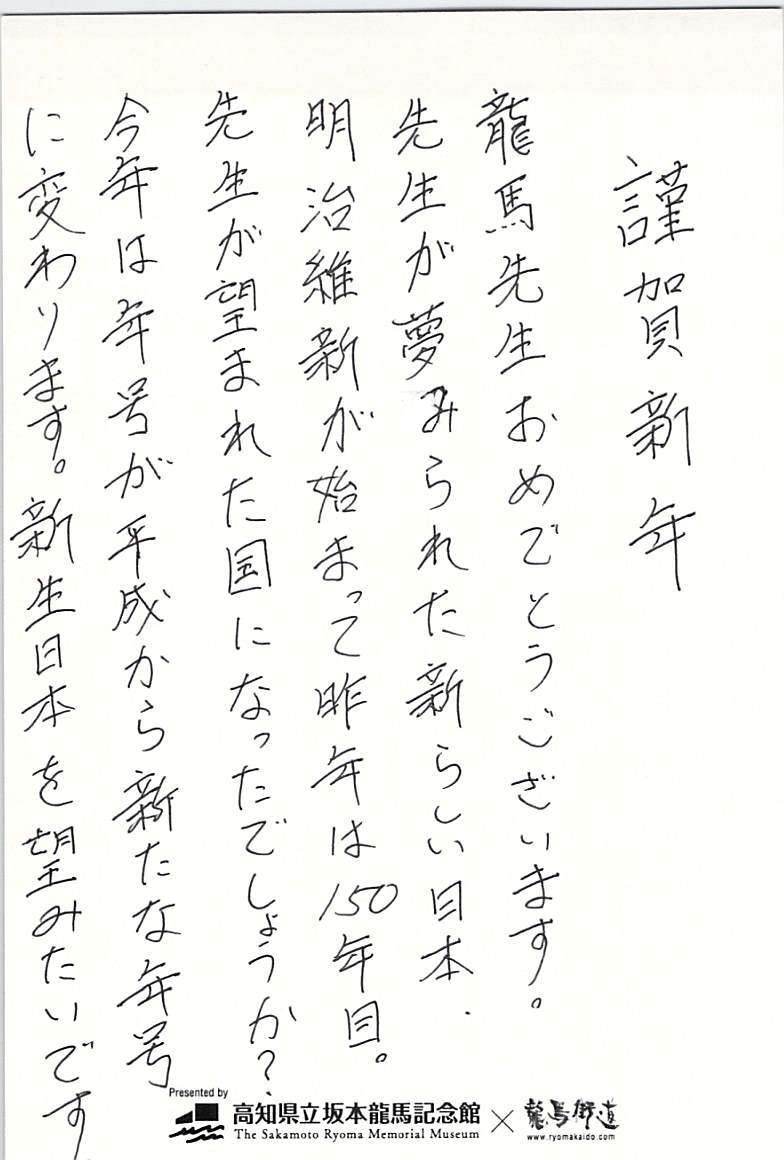 謹賀新年
龍馬先生おめでとうございます。
先生が夢みられた新らしい日本.
明治維新が始まって昨年は150年目。
先生が望まれた国になったでしょうか?
今年は年号が平成から新たな年号
に変わります。新生日本を望みたいです
Presented by
高知県立坂本龍馬記念館 × 龍馬街道
The Sakamoto Ryoma Memorial Museum
www.ryomakaido.com